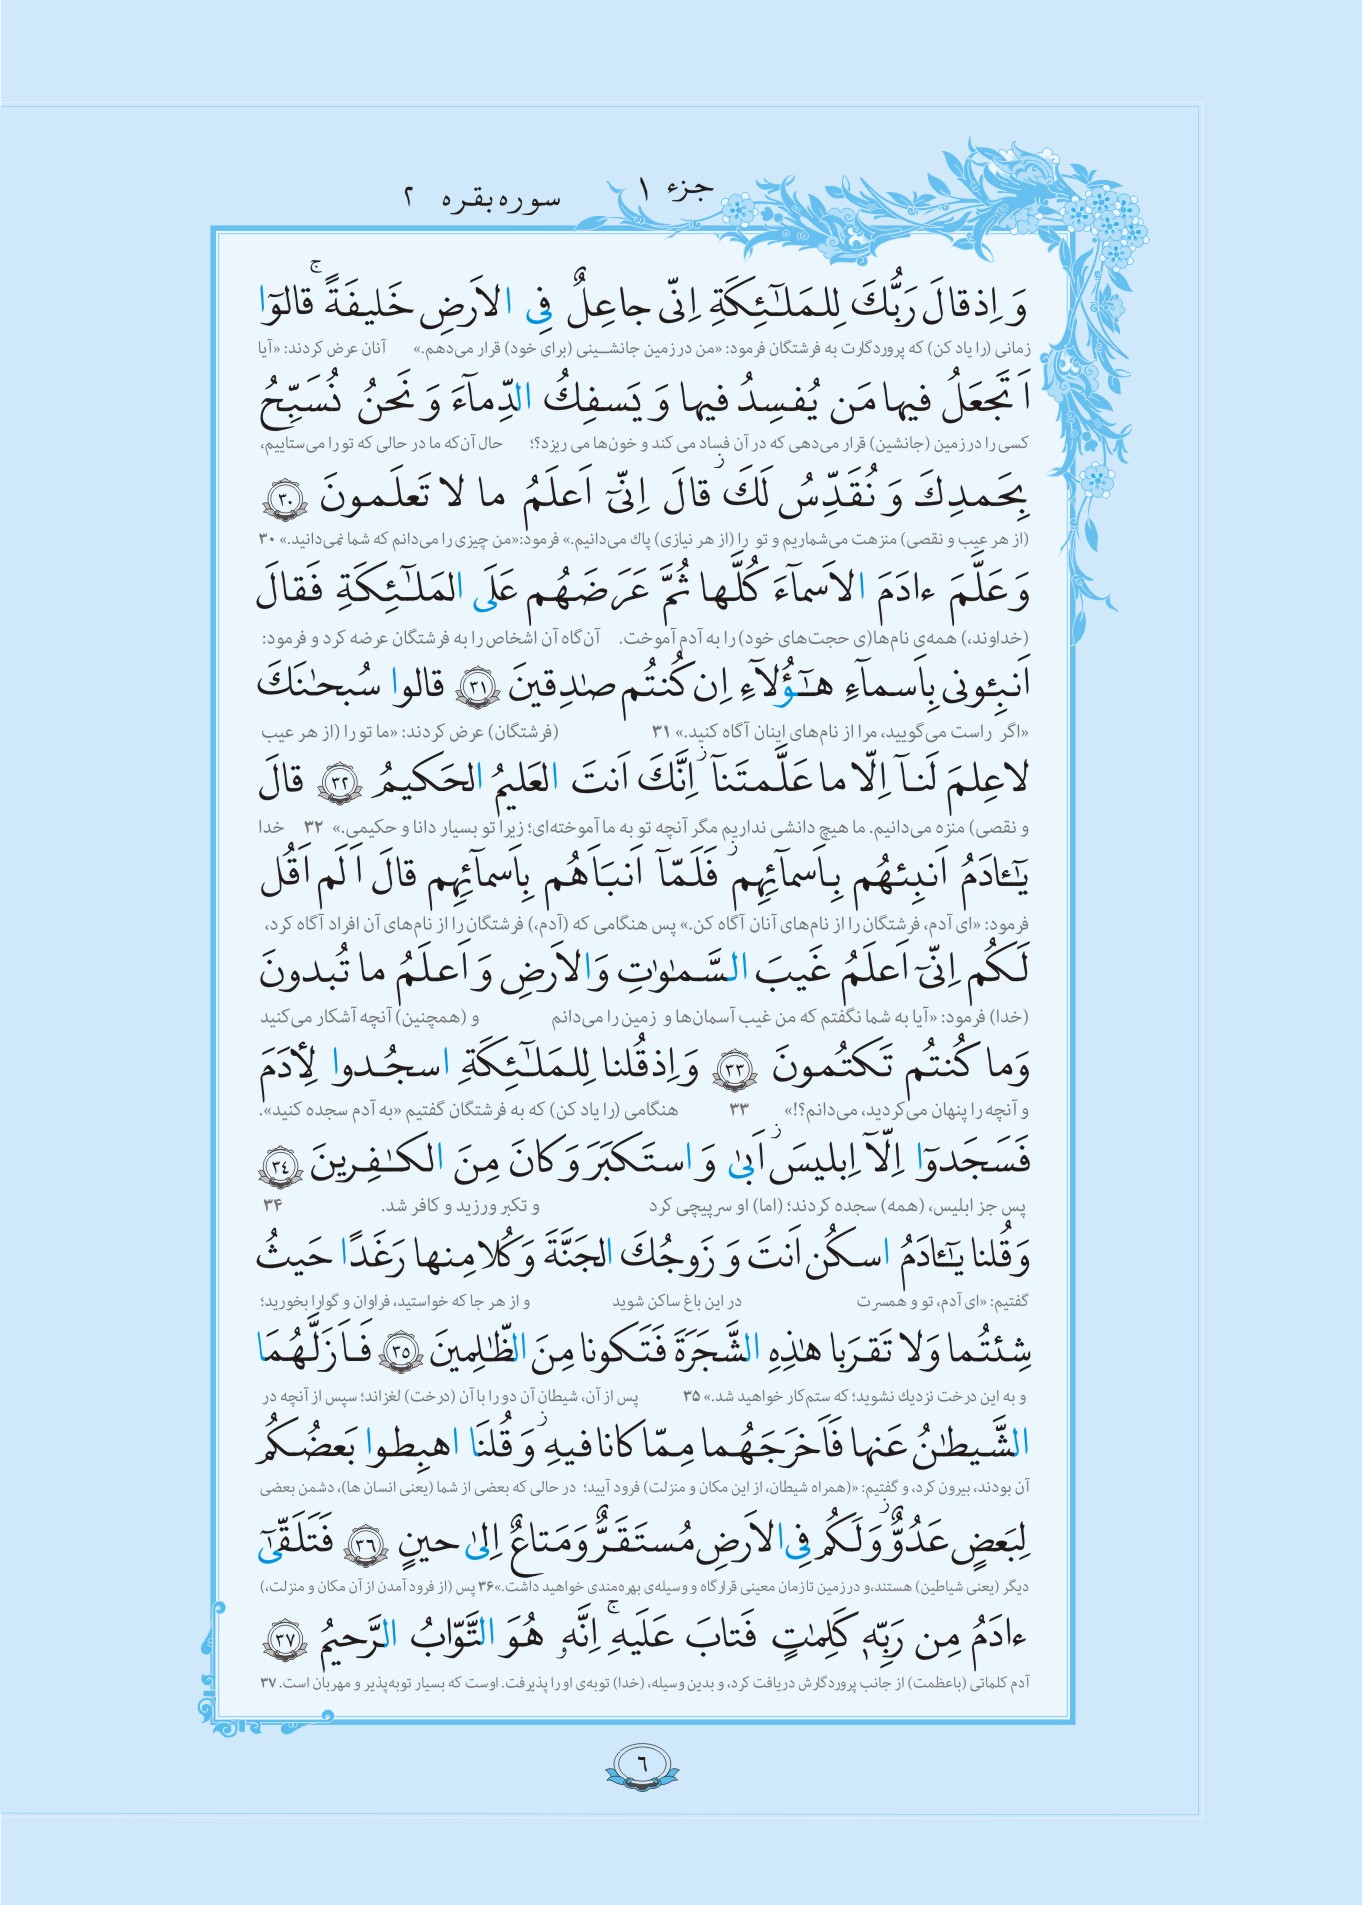 جزء ١
سوره بقره ٢
وَ اِذ قالَ رَبُّكَ لِلمَلـٰٓئِكَةِ اِنّى جاعِلٌ فِى الاَرضِ خَليفَةً ۚ قالوٓا
زمانی (را یاد کن) که پروردگارت به فرشتگان فرمود: «من در زمین جانشینی (برای خود) قرار می‌دهم.» آنان عرض کردند: «آیا
اَتَجعَلُ فيها مَن يُفسِدُ فيها وَ يَسفِكُ الدِّمآءَ وَ نَحنُ نُسَبِّحُ
کسی را در زمین (جانشین) قرار می‌دهی که در آن فساد می کند و خون‌ها می ریزد؟؛ حال آن‌که ما در حالی که تو را می‌ستاییم،
بِحَمدِكَ وَ نُقَدِّسُ لَكَ ۖ قالَ اِنّىٓ اَعلَمُ ما لا تَعلَمونَ ﴿٣٠﴾
(از هر عیب و نقصی) منزهت می‌شماریم و تو را (از هر نیازی) پاك می‌دانیم.» فرمود:«من چیزی را می‌دانم که شما نمی‌دانید.» ۳۰
وَ عَلَّمَ ءادَمَ الاَسمآءَ كُلَّها ثُمَّ عَرَضَهُم عَلَى المَلـٰٓئِكَةِ فَقالَ
(خداوند،) همه‌ی نام‌ها(ی حجت‌های خود) را به آدم آموخت. آن‌گاه آن اشخاص را به فرشتگان عرضه کرد و فرمود:
اَنبِئونى بِاَسمآءِ هـٰٓؤُلآءِ اِن كُنتُم صـٰدِقينَ ﴿٣١﴾ قالوا سُبحـٰنَكَ
«اگر راست می‌گویید، مرا از نام‌های اینان آگاه کنید.» ۳۱ (فرشتگان) عرض کردند: «ما تو را (از هر عیب
لا عِلمَ لَنـآ اِلّا ما عَلَّمتَنآ ۖ اِنَّكَ اَنتَ العَليمُ الحَكيمُ ﴿٣٢﴾ قالَ
و نقصی) منزه می‌دانیم. ما هیچ دانشی نداریم مگر آنچه تو به ما آموخته‌ای؛ زیرا تو بسیار دانا و حکیمی.» ۳۲ خدا
يـٰٓـٔادَمُ اَنبِئهُم بِـاَسمآئِهِم ۖ فَلَمّآ اَنبَاَهُم بِاَسمآئِهِم قالَ اَلَم اَقُل
فرمود: «ای آدم، فرشتگان را از نام‌های آنان آگاه کن.» پس هنگامی که (آدم،) فرشتگان را از نام‌های آن افراد آگاه کرد،
لَكُم اِنّىٓ اَعلَمُ غَيبَ السَّمـٰوٰتِ وَالاَرضِ وَ اَعلَمُ ما تُبدونَ
(خدا) فرمود: «آیا به شما نگفتم که من غیب آسمان‌ها و زمین را می‌دانم و (همچنین) آنچه آشکار می‌کنید
وَما كُنتُم تَكتُمونَ ﴿٣٣﴾ وَ اِذ قُلنا لِلمَلـٰٓئِكَةِ اسجُدوا لِأدَمَ
و آنچه را پنهان می‌کردید، می‌دانم؟!» ۳۳ هنگامی (را یاد کن) که به فرشتگان گفتیم «به آدم سجده کنید».
فَسَجَدوٓا اِلّآ اِبليسَ ۖ اَبىٰ وَ استَكبَرَ وَ كانَ مِنَ الكـٰفِرينَ ﴿٣٤﴾
پس جز ابلیس، (همه) سجده کردند؛ (اما) او سرپیچی کرد و تکبر ورزید و کافر شد. ۳۴
وَ قُلنا يـٰٓـٔادَمُ اسكُن اَنتَ وَ زَوجُكَ الجَنَّةَ وَ كُلا مِنها رَغَدًا حَيثُ
گفتیم: «ای آدم، تو و همسرت در این باغ ساکن شوید و از هر جا که خواستید، فراوان و گوارا بخورید؛
شِئتُما وَلا تَقرَبا هـٰذِهِ الشَّجَرَةَ فَتَكونا مِنَ الظّـٰلِمينَ ﴿٣٥﴾ فَـاَزَلَّهُمَا
و به این درخت نزدیك نشوید؛ که ستم‌کار خواهید شد.» ۳۵ پس از آن، شیطان آن دو را با آن (درخت) لغزاند؛ سپس از آنچه در
الشَّيطـٰنُ عَنها فَاَخرَجَهُما مِمّا كانا فيهِ ۖ وَ قُلنَا اهبِطوا بَعضُكُم
آن بودند، بیرون کرد، و گفتیم: «(همراه شیطان، از این مکان و منزلت) فرود آیید؛ در حالی که بعضی از شما (یعنی انسان ها)، دشمن بعضی
لِبَعضٍ عَدُوٌّ ۖ وَلَكُم فِى الاَرضِ مُستَقَرٌّ وَ مَتاعٌ اِلىٰ حينٍ ﴿٣٦﴾ فَتَلَقّىٰٓ
دیگر (یعنی شیاطین) هستند،و در زمین تا زمان معینی قرارگاه و وسیله‌ی بهره‌مندی خواهید داشت.»۳۶ پس (از فرود آمدن از آن مکان و منزلت،)
ءادَمُ مِن رَبِّهٖ كَلِمـٰتٍ فَتابَ عَلَيهِ ۚ اِنَّهٗ هُوَ التَّوّابُ الرَّحيمُ ﴿٣٧﴾
آدم کلماتی (باعظمت) از جانب پروردگارش دریافت کرد، و بدین وسیله، (خدا) توبه‌ی او را پذیرفت. اوست که بسیار توبه‌پذیر و مهربان است. ۳۷
٦